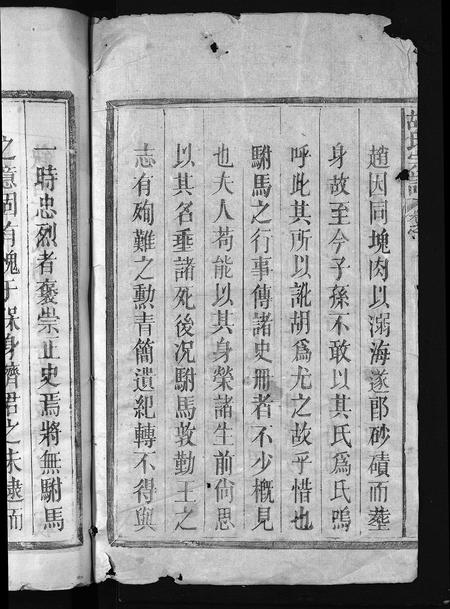 胡氏宗譜
趙因同塊肉以溺海遂郎砂磧而塟
身故至今子孫不敢以其氏爲氏嗚
呼此其所以訛胡爲尤之故乎惜也
駙馬之行事傳諸史册者不少槪見
也夫人苟能以其身榮諸生前尙思
以其名垂諸死後况駙馬敦勤王之
志有殉難之勲青簡遺紀轉不得與
一時忠烈者褒崇正史焉將無駙馬
之意固有愧于保身濟君之未隸而